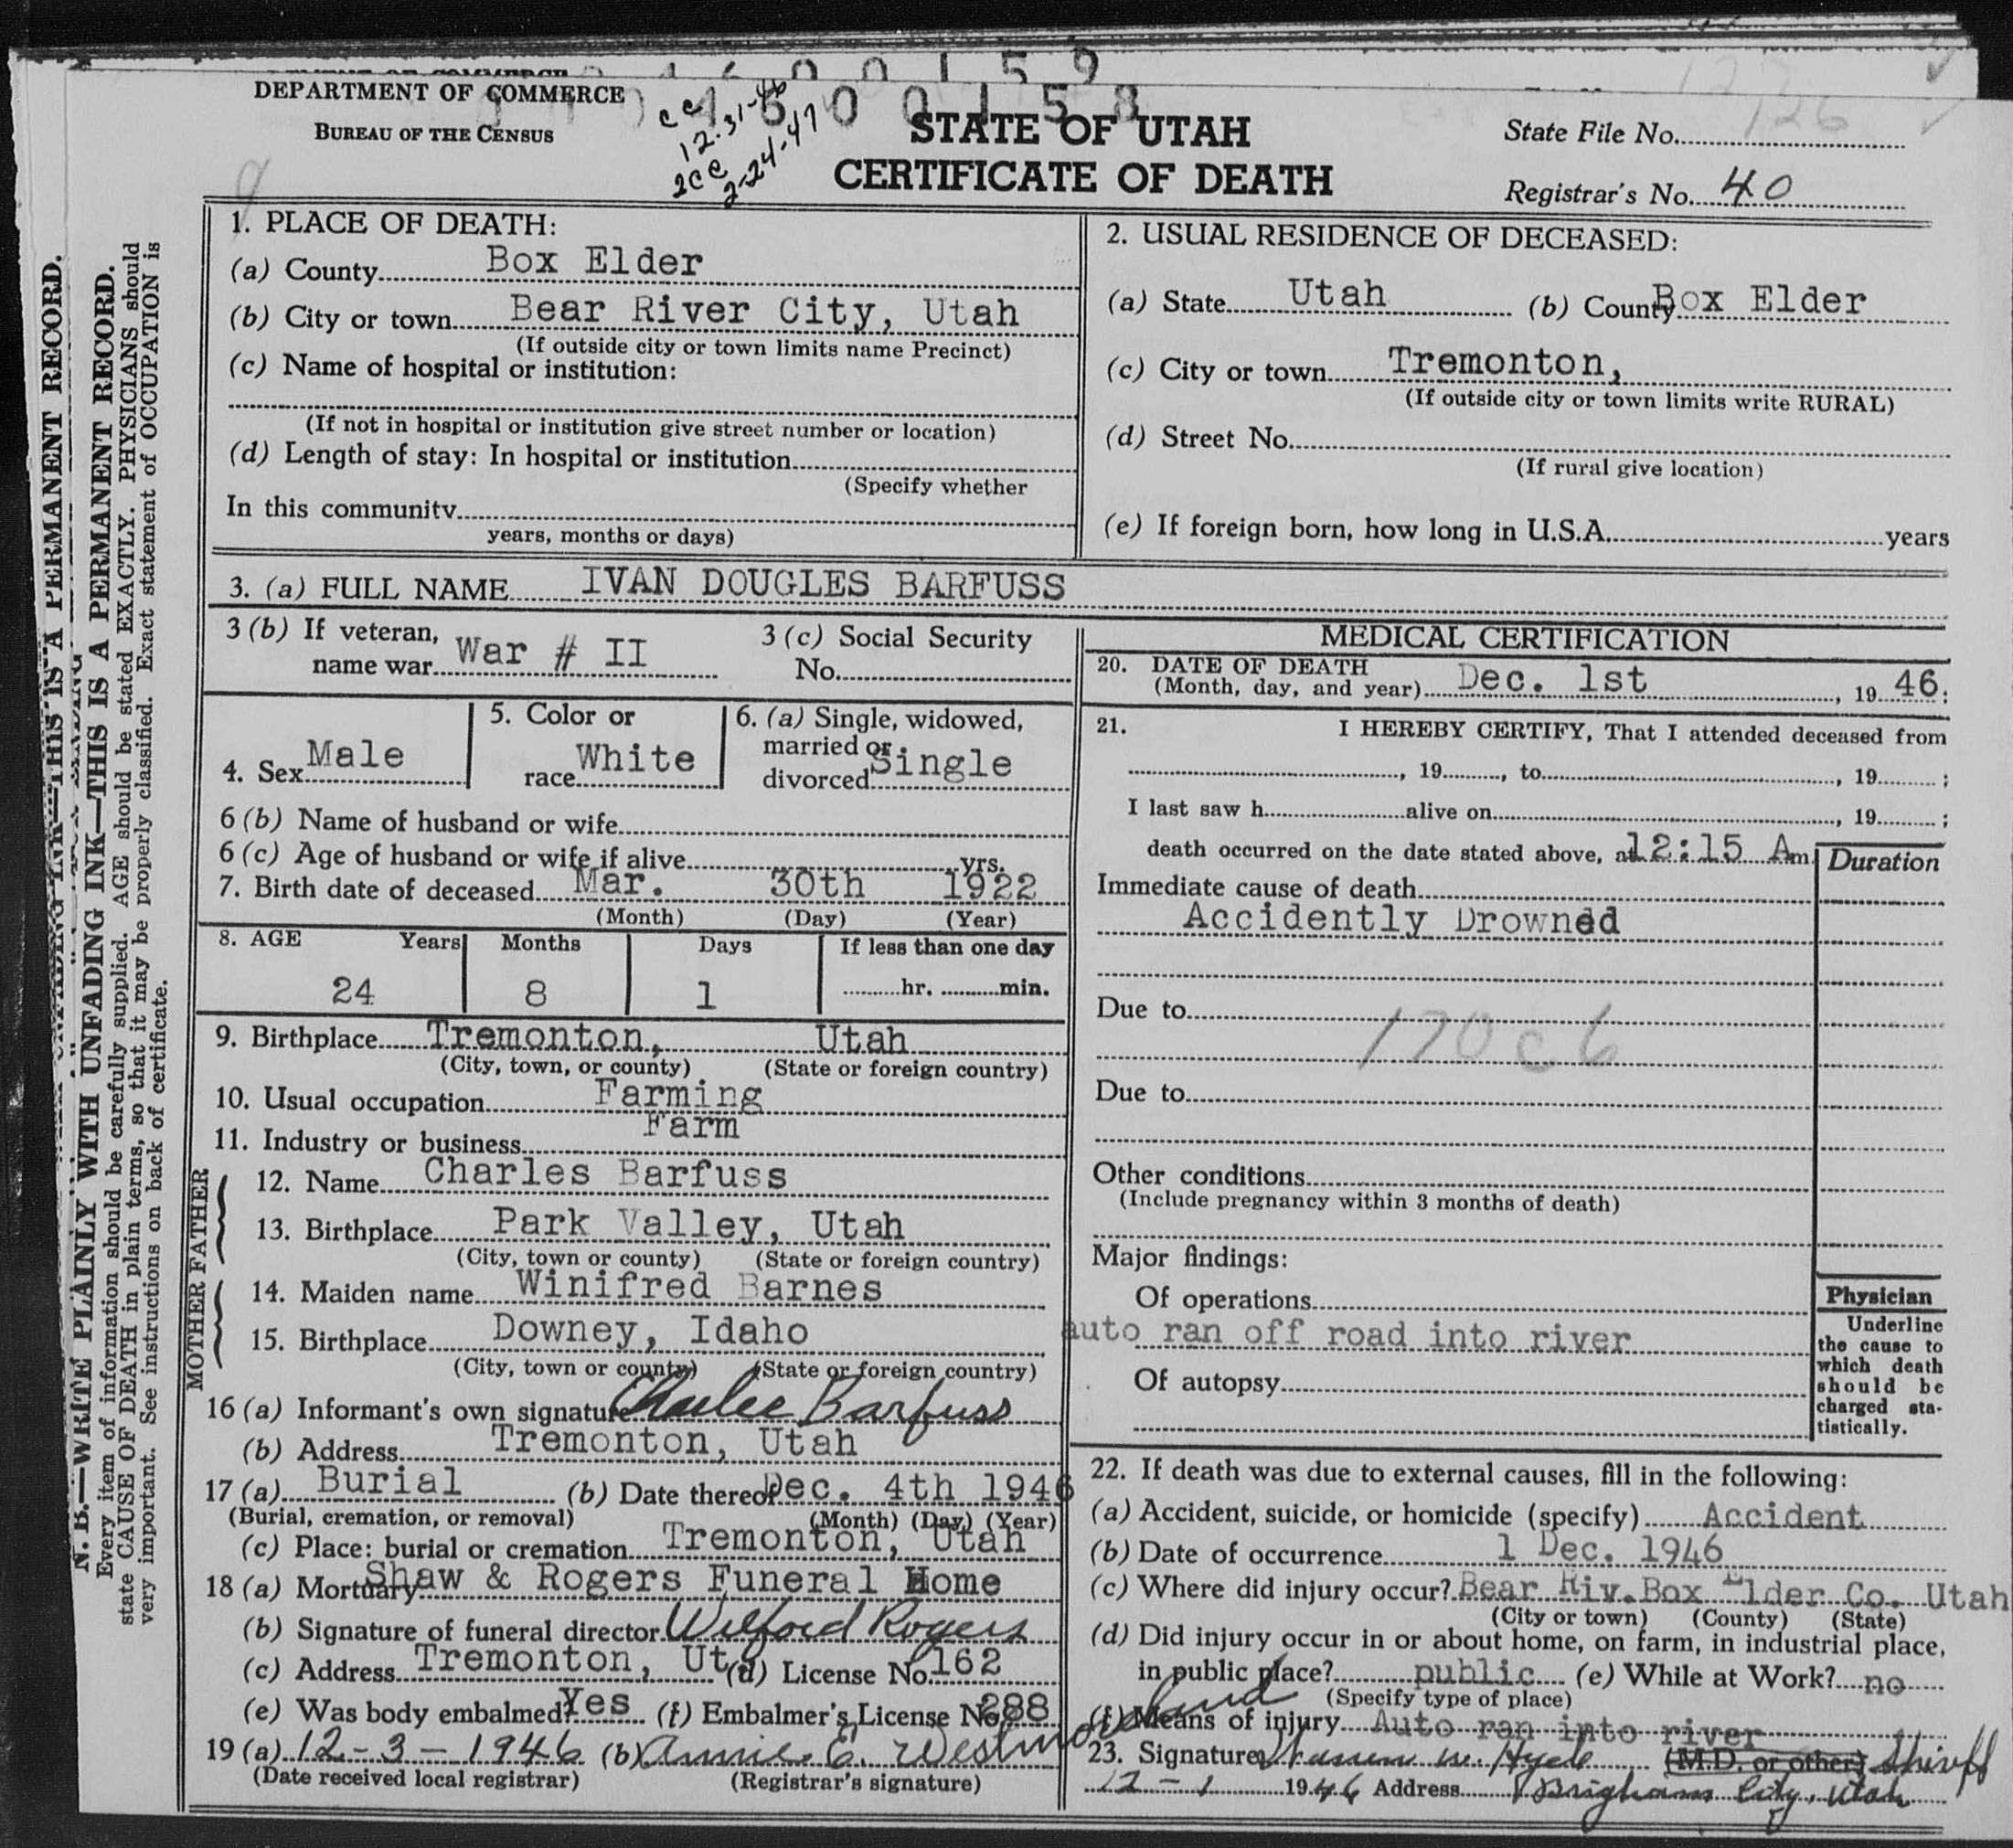 DEPARTMENT OF COMMERCE
BUREAU OF THE CENSUS
cc
12-31-46
2cc
2-24-47
STATE OF UTAH
CERTIFICATE OF DEATH
State File No. 126
Registrar's No. 40
N. B.—WRITE PLAINLY WITH UNFADING INK—THIS IS A PERMANENT RECORD.
Every item of information should be carefully supplied. AGE should be stated EXACTLY. PHYSICIANS should
state CAUSE OF DEATH in plain terms, so that it may be properly classified. Exact statement of OCCUPATION is
very important. See instructions on back of certificate.
1. PLACE OF DEATH:
(a) County Box Elder
(b) City or town Bear River City, Utah
(If outside city or town limits name Precinct)
(c) Name of hospital or institution:
(If not in hospital or institution give street number or location)
(d) Length of stay: In hospital or institution
(Specify whether
In this community
years, months or days)
2. USUAL RESIDENCE OF DECEASED:
(a) State Utah (b) County Box Elder
(c) City or town Tremonton,
(If outside city or town limits write RURAL)
(d) Street No.
(If rural give location)
(e) If foreign born, how long in U.S.A. years
3. (a) FULL NAME IVAN DOUGLES BARFUSS
3 (b) If veteran, name war War # II
3 (c) Social Security No.
4. Sex Male
5. Color or race White
6. (a) Single, widowed, married or divorced Single
6 (b) Name of husband or wife
6 (c) Age of husband or wife if alive yrs.
7. Birth date of deceased Mar. 30th 1922
(Month) (Day) (Year)
8. AGE Years Months Days If less than one day
24 8 1 hr. min.
9. Birthplace Tremonton, Utah
(City, town, or county) (State or foreign country)
10. Usual occupation Farming
11. Industry or business Farm
FATHER
12. Name Charles Barfuss
13. Birthplace Park Valley, Utah
(City, town or county) (State or foreign country)
MOTHER
14. Maiden name Winifred Barnes
15. Birthplace Downey, Idaho
(City, town or county) (State or foreign country)
16 (a) Informant's own signature Charlee Barfuss
(b) Address Tremonton, Utah
17 (a) Burial (b) Date thereof Dec. 4th 1946
(Burial, cremation, or removal) (Month) (Day) (Year)
(c) Place: burial or cremation Tremonton, Utah
18 (a) Mortuary Shaw & Rogers Funeral Home
(b) Signature of funeral director Wilford Rogers
(c) Address Tremonton, Ut (d) License No. 162
(e) Was body embalmed? Yes (f) Embalmer's License No. 288
19 (a) 12-3-1946 (b) Annie E. Westmoreland
(Date received local registrar) (Registrar's signature)
MEDICAL CERTIFICATION
20. DATE OF DEATH
(Month, day, and year) Dec. 1st, 19 46.
21. I HEREBY CERTIFY, That I attended deceased from
, 19 , to , 19 ;
I last saw h alive on , 19 ;
death occurred on the date stated above, at 12:15 A m.
Duration
Immediate cause of death
Accidently Drowned
Due to
170c6
Due to
Other conditions
(Include pregnancy within 3 months of death)
Major findings:
Of operations
auto ran off road into river
Of autopsy
Physician
Underline
the cause to
which death
should be
charged sta-
tistically.
22. If death was due to external causes, fill in the following:
(a) Accident, suicide, or homicide (specify) Accident
(b) Date of occurrence 1 Dec. 1946
(c) Where did injury occur? Bear Riv. Box Elder Co. Utah
(City or town) (County) (State)
(d) Did injury occur in or about home, on farm, in industrial place,
in public place? public (e) While at Work? no
(Specify type of place)
(f) Means of injury Auto ran into river
23. Signature Warren W. Hyde (M.D. or other) Shiriff
12-1 1946 Address Brigham City, Utah